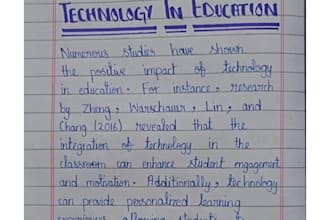 TECHNOLOGY IN EDUCATION
Numerous studies have shown
the positive impact of technology
in education. For instance, research
by Zheng, Warschauer, Lin, and
Chang (2016) revealed that the
integration of technology in the
classroom can enhance student engagement
and motivation. Additionally, technology
can provide personalized learning